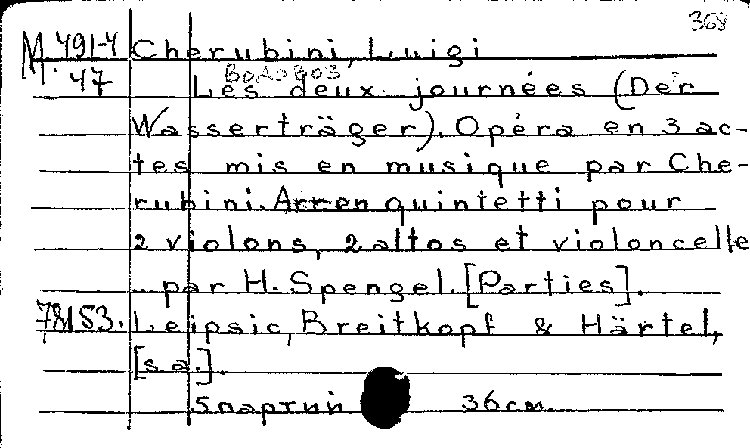 368
М. 491-4 Cherubini, Luigi
47 Водовоз
Les deux journées (Der
Wasserträger). Opéra en 3 ac-
tes mis en musique par Che-
rubini. Arr en quintetti pour
2 violons, 2 altos et violoncelle
... par H. Spengel. [Parties].
Leipsic, Breitkopf & Härtel,
[s.a.].
5 партий 36 см.